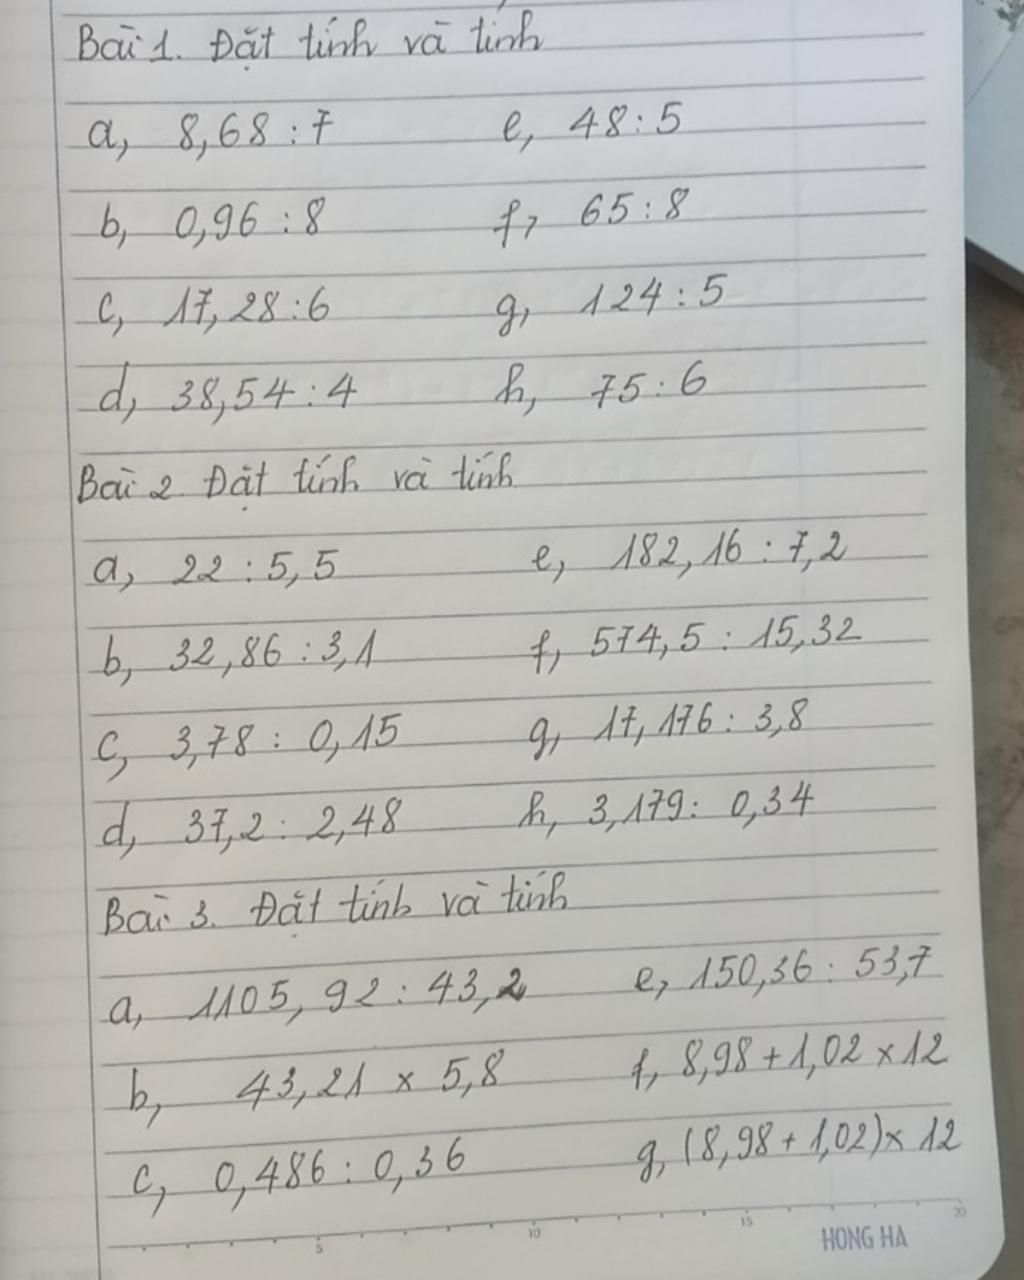 Bài 1. Đặt tính và tính
a, 8,68 : 7 e, 48 : 5
b, 0,96 : 8 f, 65 : 8
c, 17,28 : 6 g, 124 : 5
d, 38,54 : 4 h, 75 : 6
Bài 2. Đặt tính và tính
a, 22 : 5,5 e, 182,16 : 7,2
b, 32,86 : 3,1 f, 574,5 : 15,32
c, 3,78 : 0,15 g, 17,176 : 3,8
d, 37,2 : 2,48 h, 3,179 : 0,34
Bài 3. Đặt tính và tính
a, 1105,92 : 43,2 e, 150,36 : 53,7
b, 43,21 x 5,8 f, 8,98 + 1,02 x 12
c, 0,486 : 0,36 g, (8,98 + 1,02) x 12
5 10 15 20
HONG HA